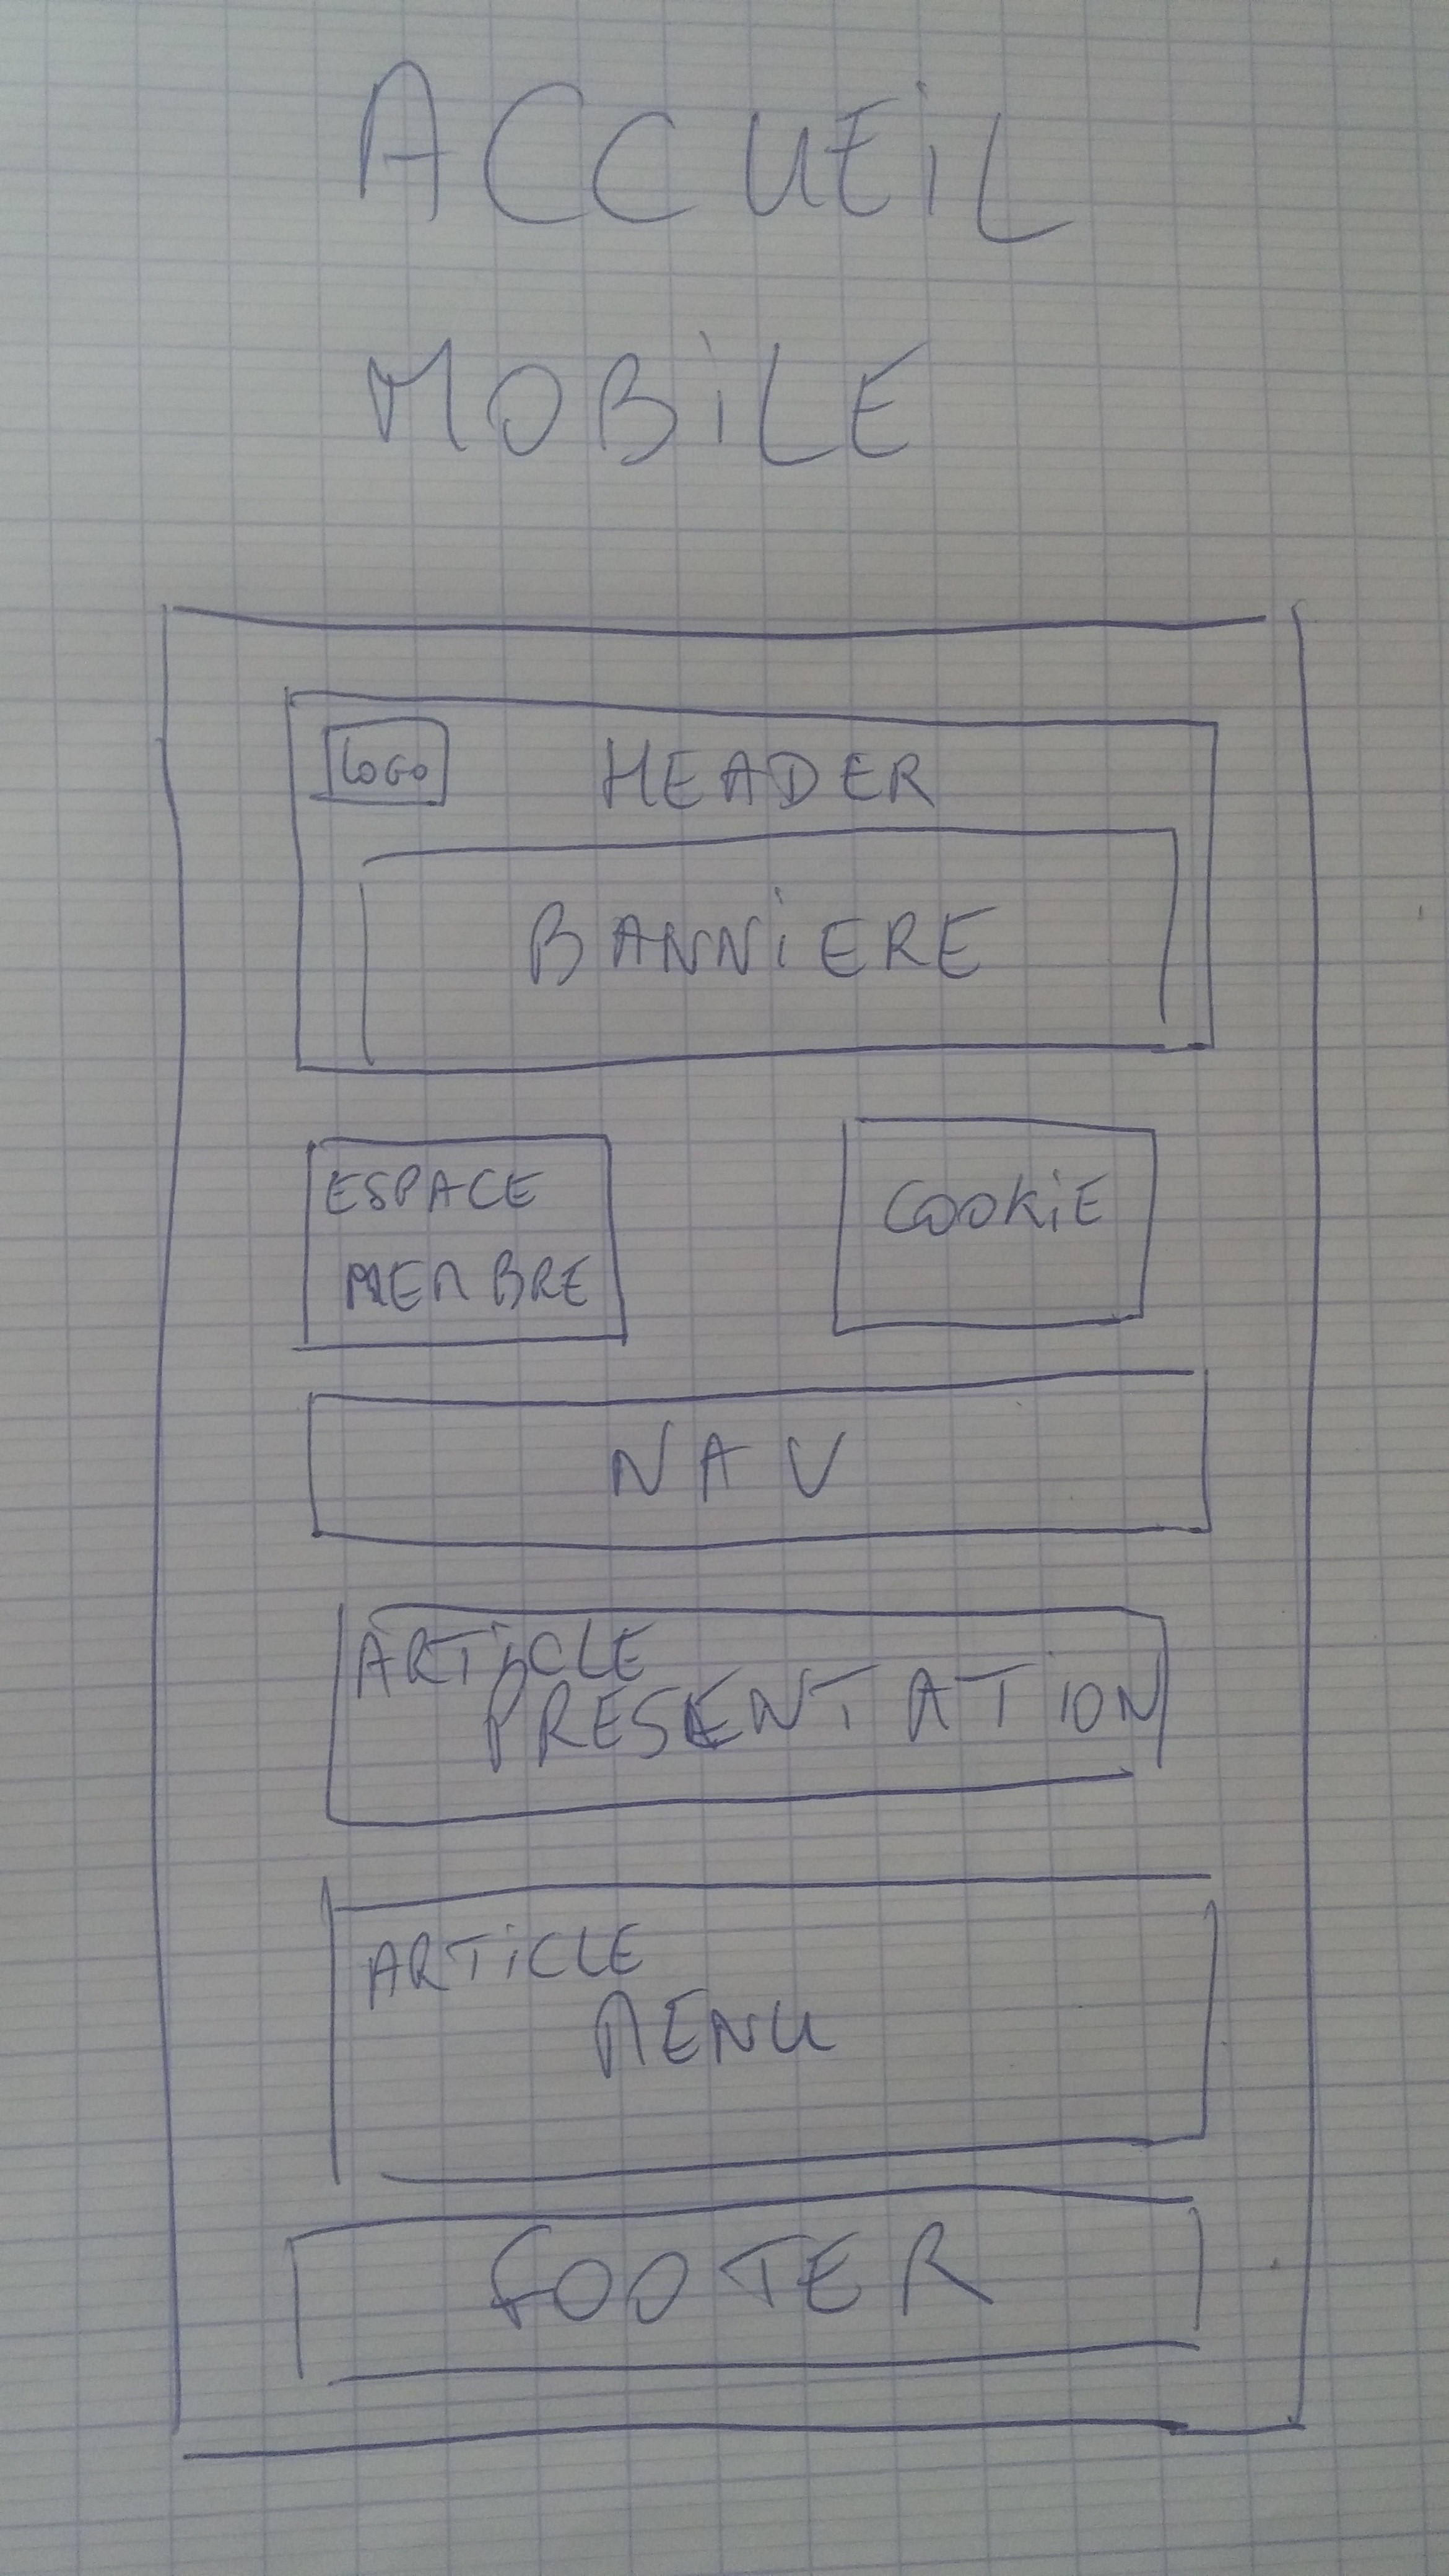 ACCUEIL
MOBILE
LOGO HEADER
BANNIERE
ESPACE
MEMBRE
COOKIE
NAV
ARTICLE
PRESENTATION
ARTICLE
MENU
FOOTER